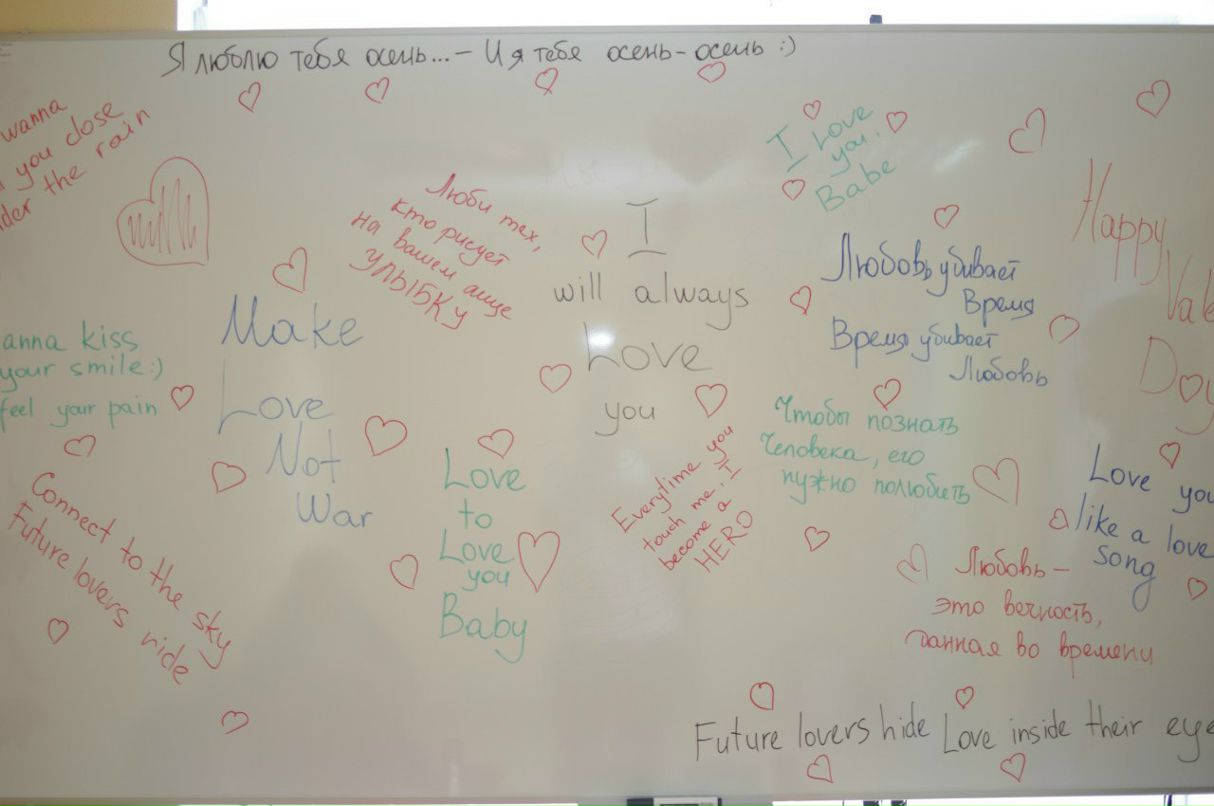 Я люблю тебя осень...- И я тебе осень-осень :)
wanna
you close
the rain
I Love
you,
Babe
Happy
Люби тех,
кто рисует
на вашем лице
УЛЫБКУ
I
will always
Love
you
Любовь убивает
Время
Время убивает
Любовь
Make
Love
Not
War
kiss
your smile:)
feel your pain
Day
Чтобы познать
Человека, его
нужно полюбить
Love
to
Love
you
Baby
Everytime you
touch me, I
become a
HERO
Love you
like a love
song
Connect to the sky
Future lovers ride
Любовь -
это вечность,
данная во времени
Future lovers hide Love inside their